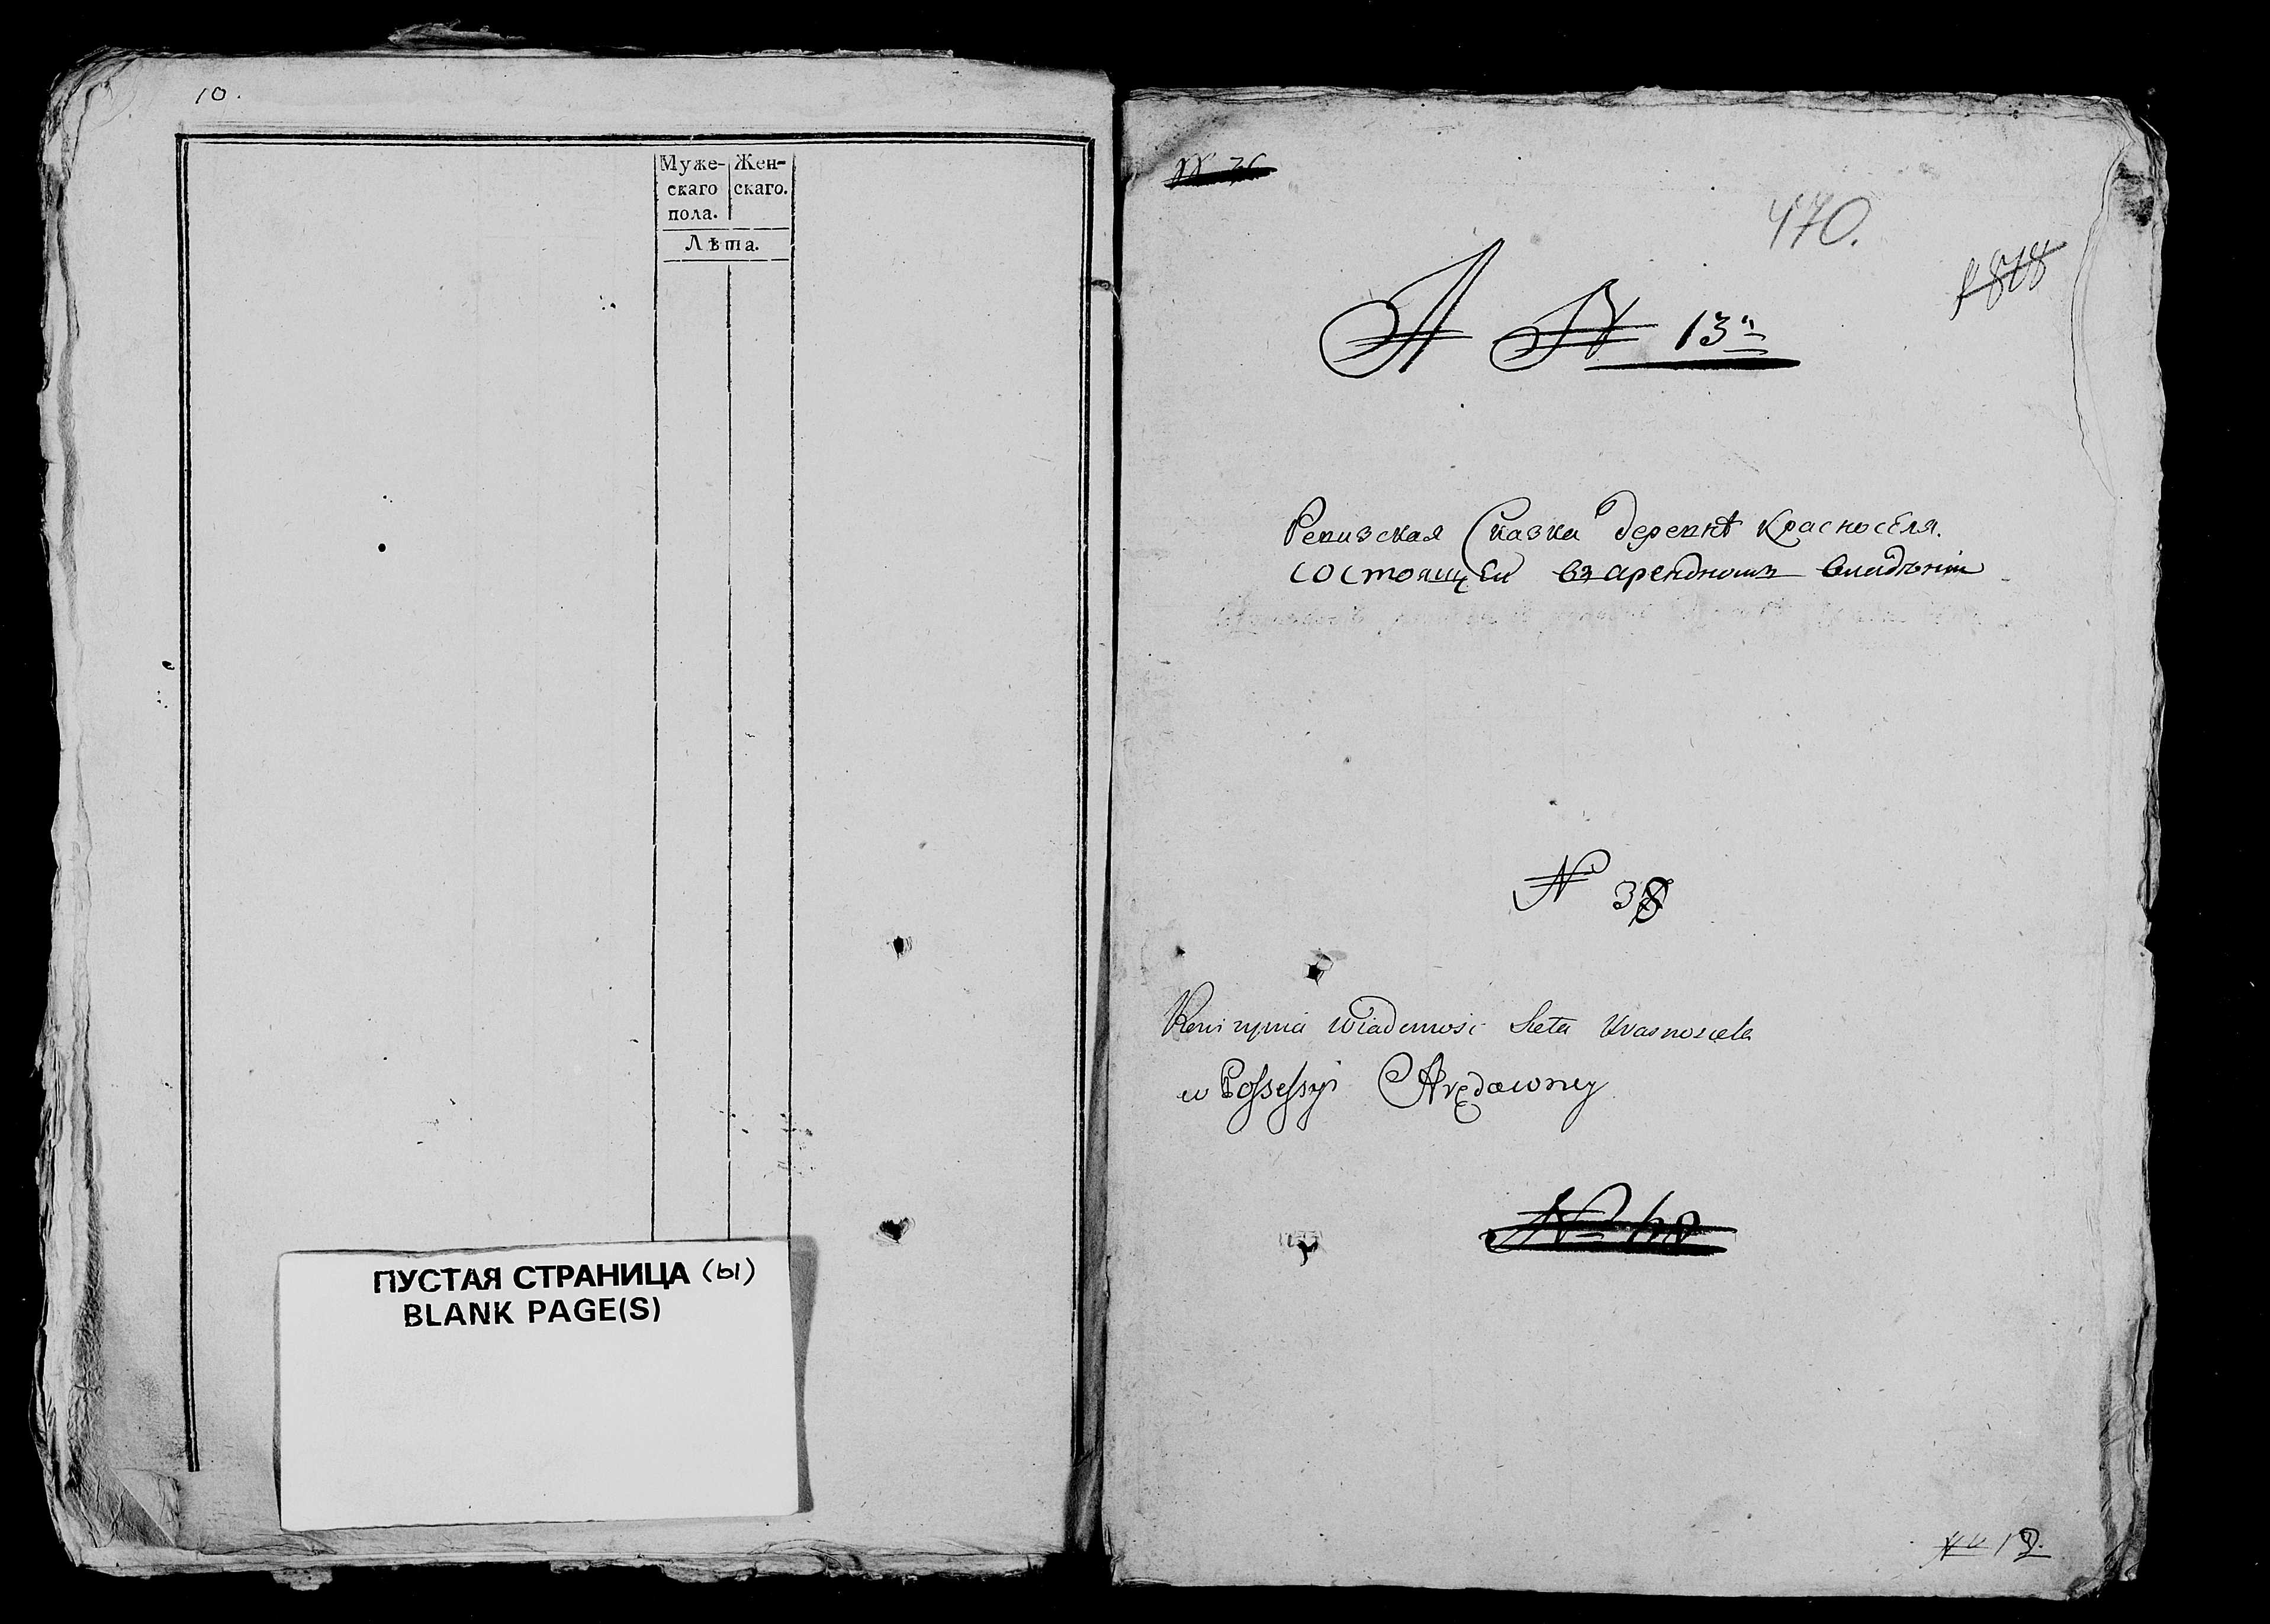 10.
Муже- Жен-
скаго скаго.
пола.
Лѣта.
ПУСТАЯ СТРАНИЦА (Ы)
BLANK PAGE(S)
470.
A N 13
Ревизская Сказка деревнѣ Красноселя.
состоящей въ арендномъ владѣніи
N 38
Rewizyina Wiadomosc Sieła Krasnosiela
w Possessyi Arędowney
12.